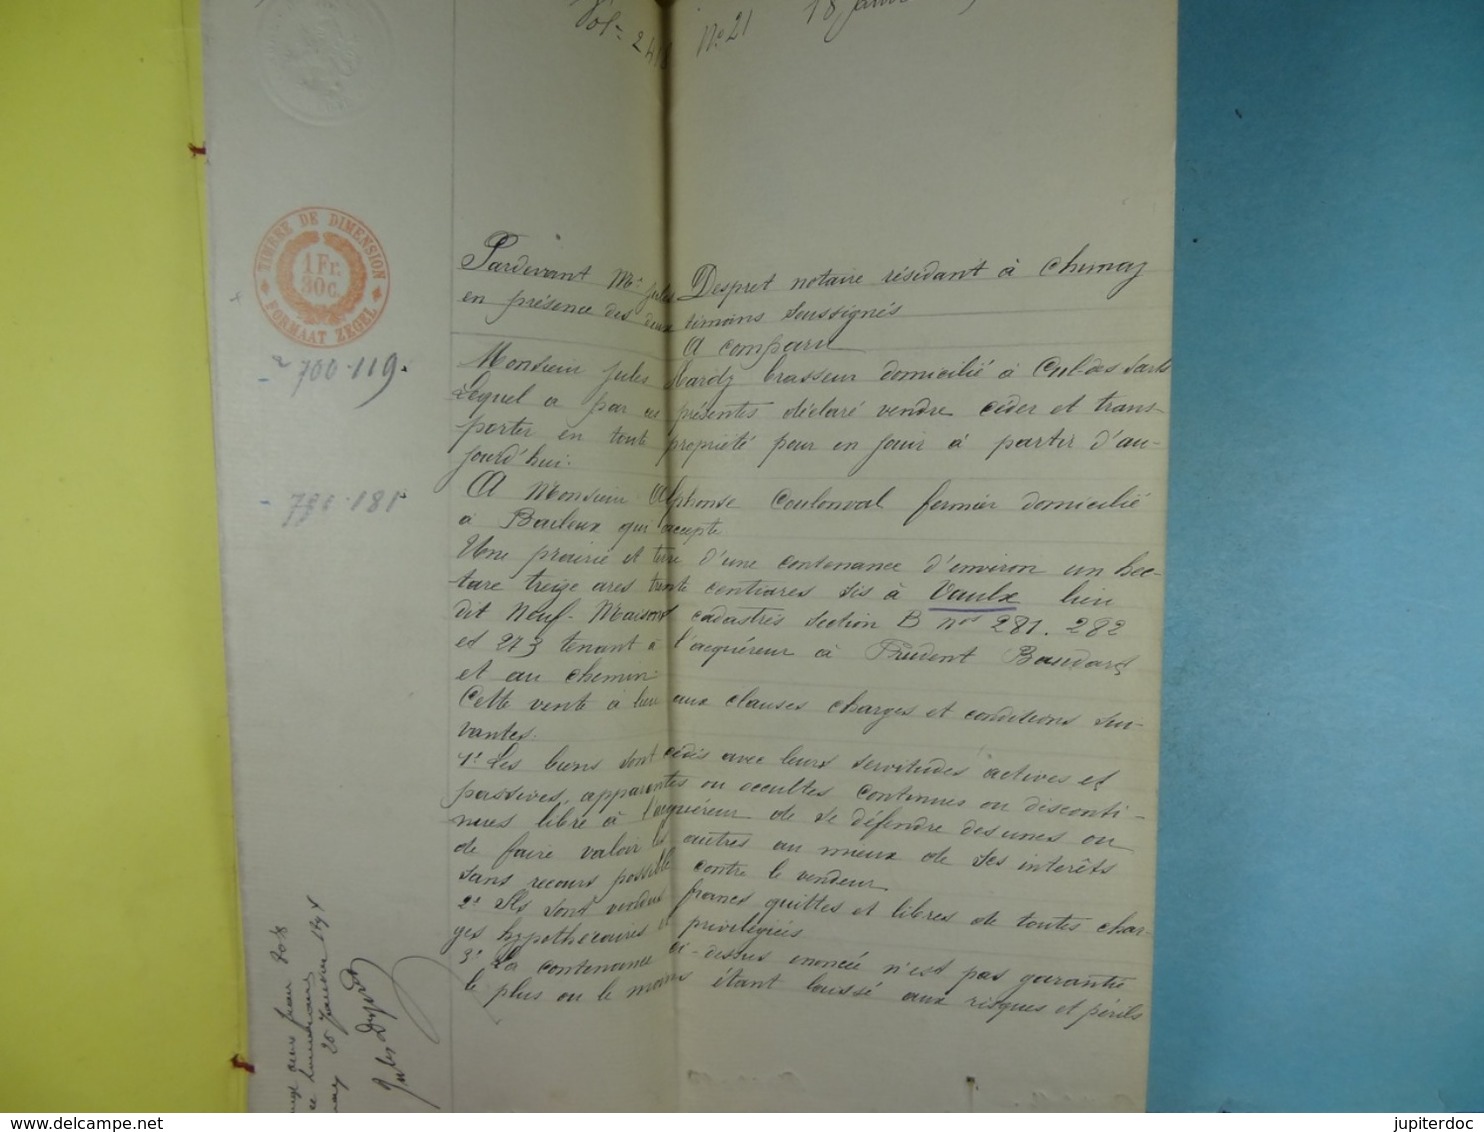 Vol= 241 N° 21 18
TIMBRE DE DIMENSION
1 Fr.
30 c.
FORMAAT ZEGEL
700.119.
790.181
Pardevant Me Jules Despret notaire résidant à Chimay
en présence des deux témoins soussignés
A comparu
Monsieur Jules Hardy brasseur domicilié à Cul-des-Sarts
Lequel a par ces présentes déclaré vendre céder et trans-
porter en toute propriété pour en jouir à partir d'au-
jourd'hui.
A Monsieur Alphonse Coulonval fermier domicilié
à Bailoux qui accepte
Une prairie et terre d'une contenance d'environ un hec-
tare treize ares trente centiares sis à Vaulx lieu
dit Neuf-Maisons cadastrés section B nos 281. 282
et 273 tenant à l'acquéreur à Prudent Baudart
et au chemin.
Cette vente à lieu aux clauses charges et conditions sui-
vantes.
1° Les biens sont cédés avec leurs servitudes actives et
passives, apparentes ou occultes continues ou disconti-
nues libre à l'acquéreur de se défendre des unes ou
de faire valoir les autres au mieux de ses interêts
sans recours possible contre le vendeur
2° Ils sont vendus francs quittes et libres de toutes char-
ges hypothécaires et privilégiées
3° La contenance ci-dessus énoncée n'est pas garantie
le plus ou le moins étant laissé aux risques et périls
25 Janvier
Jules Despret
jupiterdoc